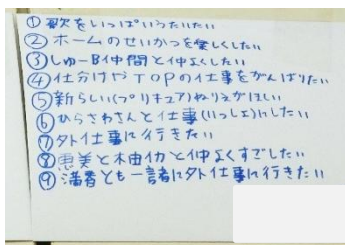 ① 歌をいっぱいうたいたい
② ホームのせいかつを楽しくしたい
③ しゅーB仲間と仲よくしたい
④ 仕分けやTOPの仕事をがんばりたい
⑤ 新らしい(プリキュア)ぬりえがほしい
⑥ ひらさわさんと仕事(いっしょ)にしたい
⑦ 外仕事に行きたい
⑧ 恵美と と仲よくすごしたい
⑨ とも一諸に外仕事に行きたい